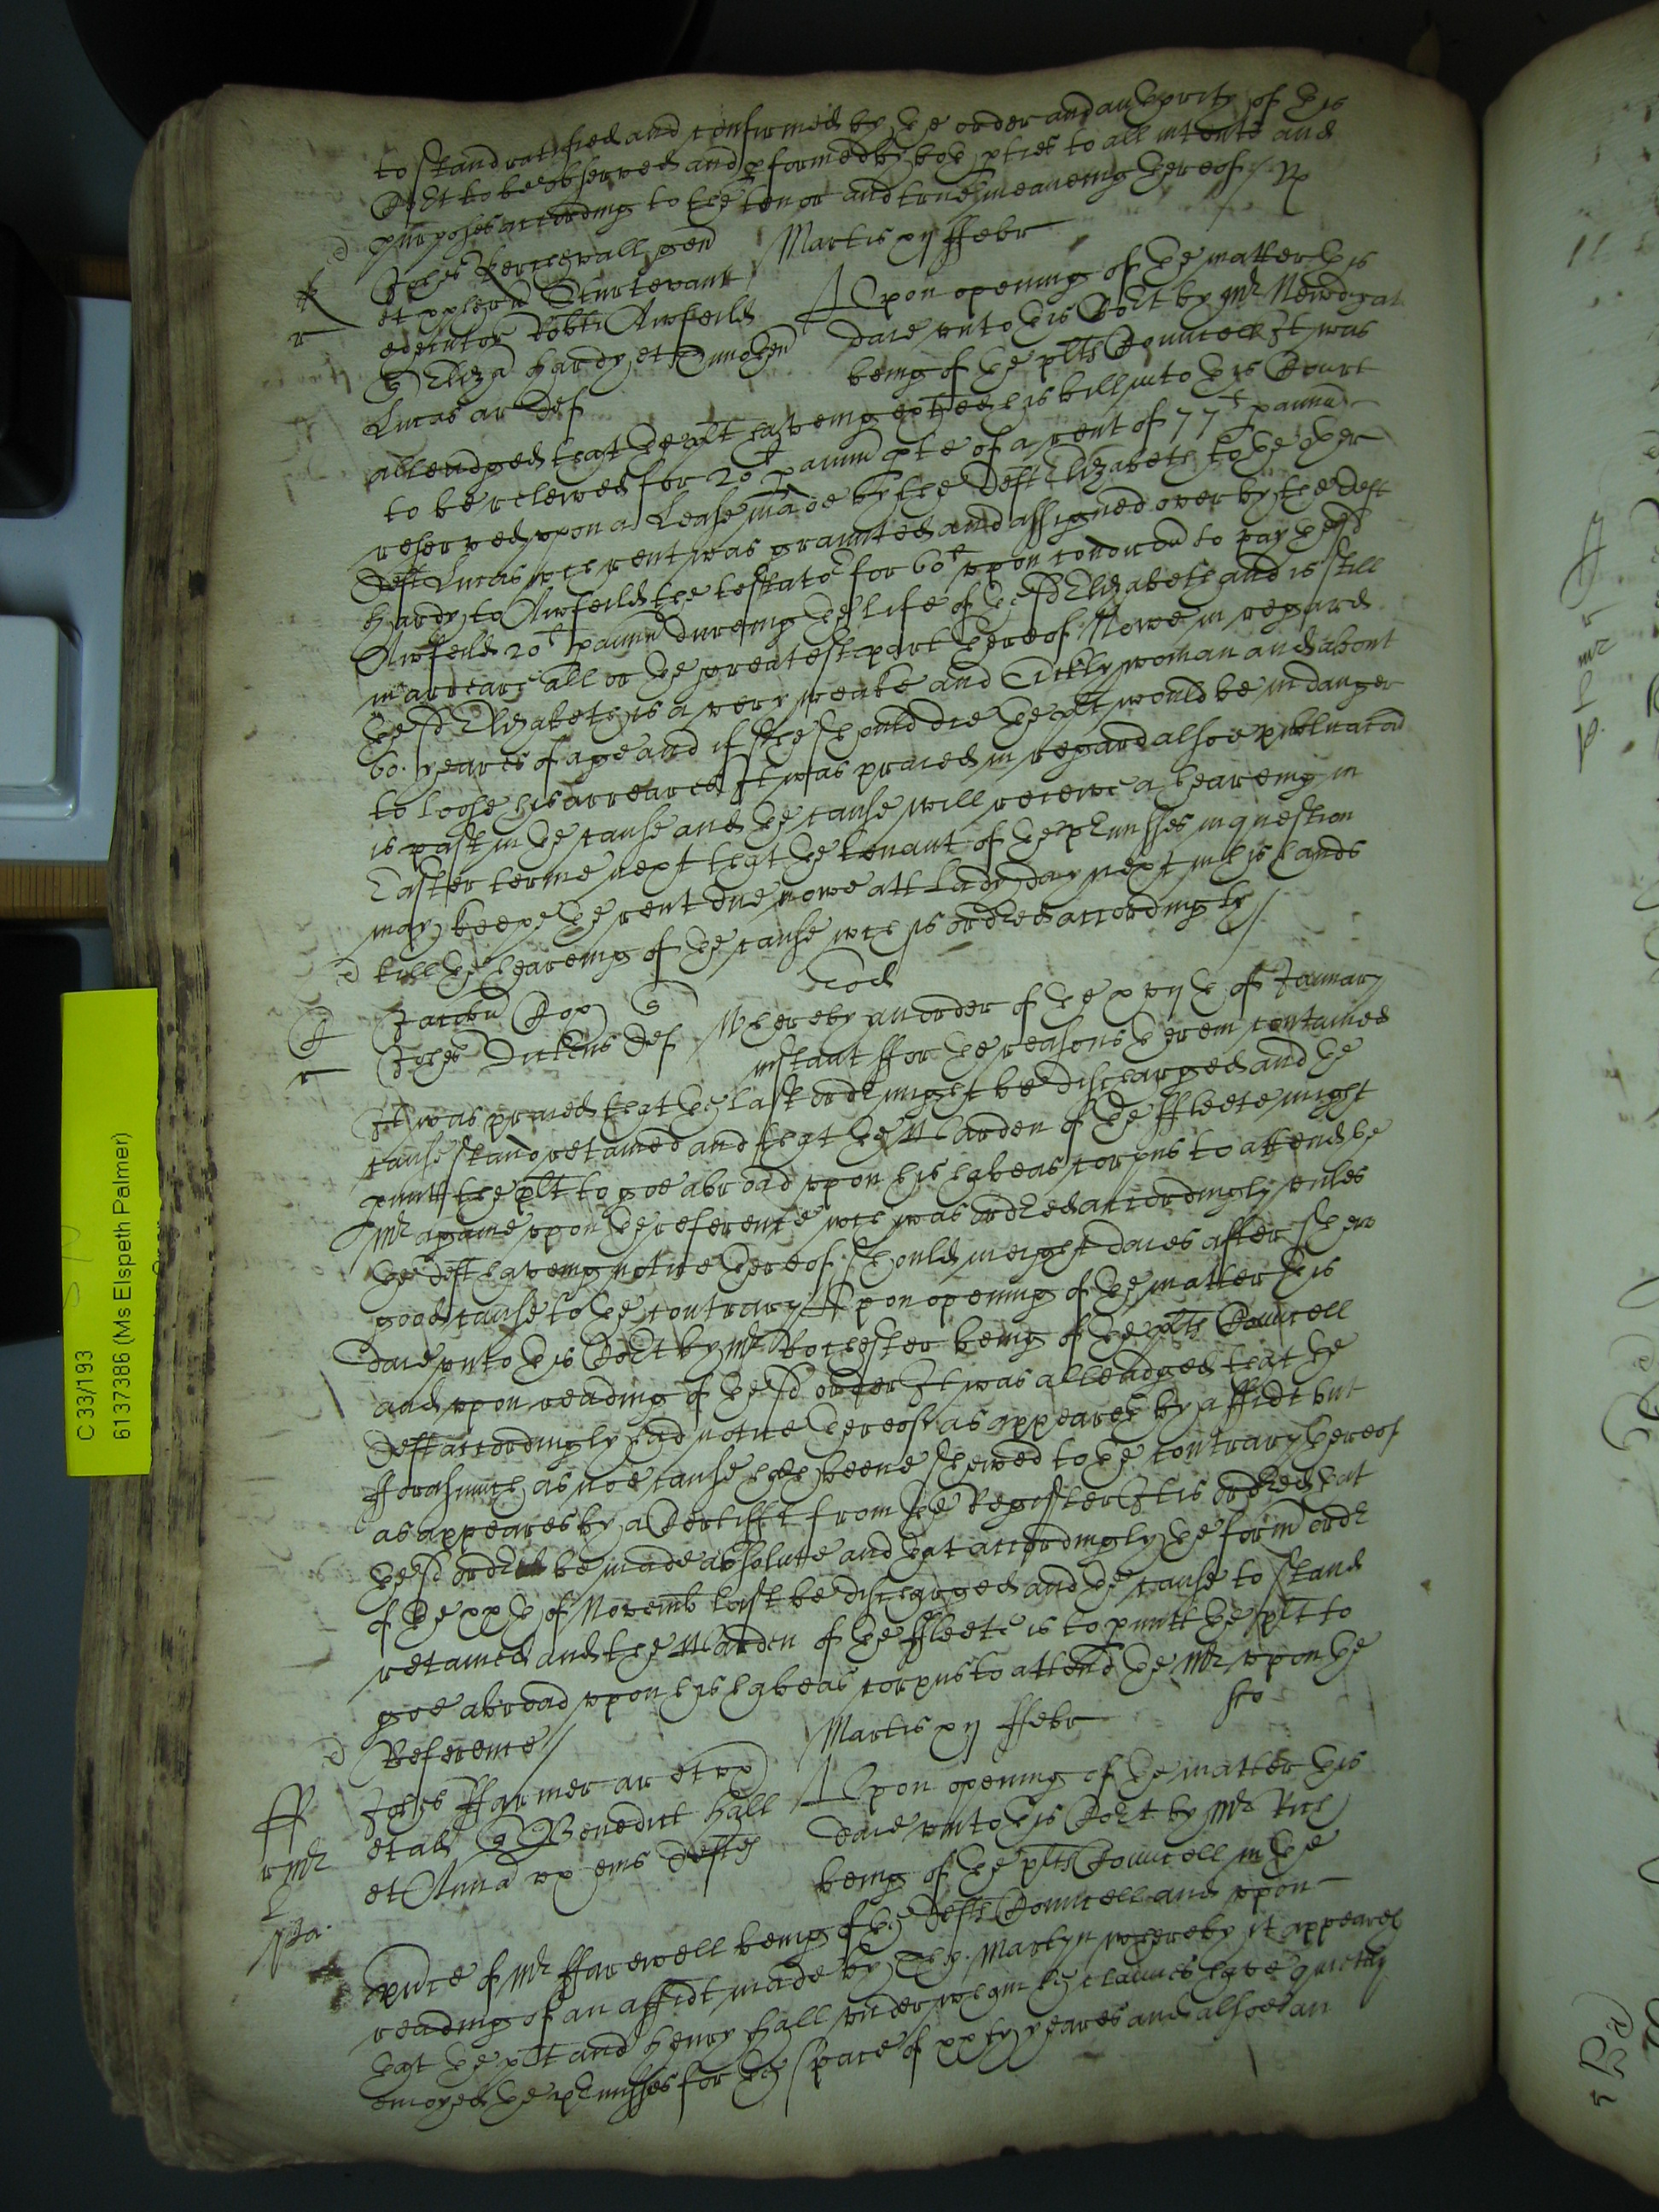 to stand ratified and confirmed by the order and authority of this
Cort to be observed and pformed by both pties to all intents and
purposes according to the tenor and true meaneing thereof / Rx
Martis xij ffebr
Johes Percevall gen
et uxor Sturtevant
executor Robti Awfeild
Eliza Hardy et
Lucas ar Def
Upon opening of the matter this
daie unto this Cort by Mr Newdigat
being of the plts Councell It was
alleadged that the plt haveing exhited his bill into this Court
to be releived for 20l p annu pte of a rent of 77l p annu
reserved upon a Lease made by the Deft Elizabeth to the other
Deft Lucas wch rent was graunted and assigned over by the Deft
Hardy to Awfeild the testator for 60l upon condicon to pay the sd
Awfeild 20l p annu dureing the life of the sd Elizabeth and is still
in arreare all or the greatest part thereof Nowe in regard
the sd Elizabeth is a very weake and Sickly woman and about
60. yeares of age and if she should die the plt would be in danger
to loose his arreares It was praied in regard alsoe publicacon
is past in the cause and the cause will receive a heareing in
Easter terme next that the tenant of the pmisses in question
may keepe the rent due nowe att Lady day next in his hands
till the heareing of the cause wch is ordred accordingly /
Eod
Jacobu Cox
Johes Dickens Def
Whereby an order of the xvijth of January
instant ffor the reasons therein contained
It was praied that the last ordr might be discharged and the
cause stand retained and that the Warden of the ffleete might
pmitt the plt to goe abroad upon his habeas corpus to attend the
Mr againe upon the reference wch was ordred accordingly unles
the deft haveing notice thereof should in eight daies after shew
good cause to the contrary Upon opening of the matter this
daie unto this Cort by Mr Rochester being of the plts Councell
and upon reading of the sd order It was alleadged that the
Deft accordingly had notice thereof as appeares by affidt but
fforasmuch as noe cause hath beene shewed to the contrary thereof
as appeares by a Certifft from the Register It is ordred that
the sd ordr be made absolute and that accordingly the former ordr
of the xxth of Novemb last be discharged and the cause to stand
retained and the Warden of the ffleete is to pmitt the plt to
goe abroad upon his habeas corpus to attend the Mr upon the
Reference /
Martis xij ffebr
Johes ffarmer ar et ux
et al Benedict Hall
et Anna ux eius Deftes
Upon opening of the matter this
daie unto this Cort by Mr Rich
being of the plts Councell in the
pnce of Mr ffarewell being of the Defts Councell and upon
reading of an affidt made by Tho: Martyn whereby it appeares
that the plt and Henry Hall under whom he claimes have quietly
enioyed the pmisses for the space of xxty yeares and alsoe an
C 33/193
6137386 (Ms Elspeth Palmer)